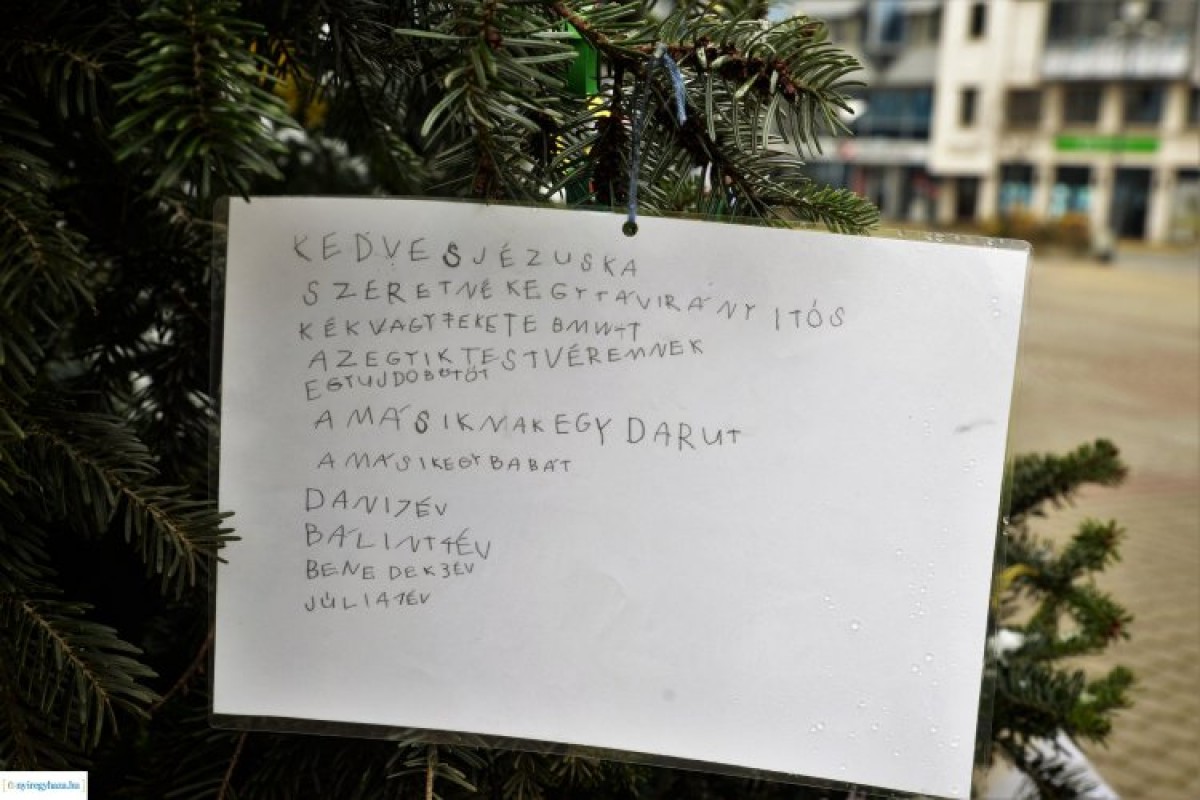 KEDVES JÉZUSKA
SZERETNÉK EGY TÁVIRÁNYITÓS
KÉK VAGY FEKETE BMW-T
AZ EGYIK TESTVÉREMNEK
EGY UJ DOBOTÓT
A MÁSIKNAK EGY DARUT
A MÁSIK EGY BABÁT
DANI 7 ÉV
BÁLINT 4 ÉV
BENEDEK 3 ÉV
JÚLIA 1 ÉV
© nyiregyhaza.hu